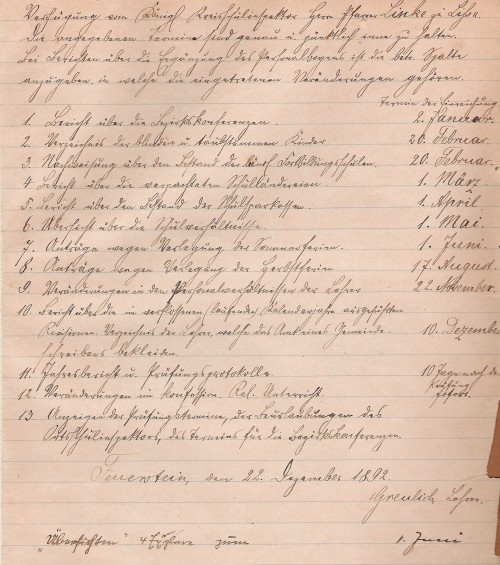 Verfügung vom Königl. Kreisschulinspektor Herrn Pfarrer Linke zu Lehra.
Die angegebenen Termine sind genau u. pünktlich inne zu halten.
Bei Berichten über die Ergänzung des Personalbogens ist die betr. Spalte
anzugeben, in welche die eingetretenen Veränderungen gehören.
Termin der Einreichung
1. Bericht über die Bezirkskonferenzen. 2. Januar.
2. Verzeichnis der blinden u. taubstummen Kinder 20. Februar
3. Nachweisung über den Bestand der Fortbildungsschulen. 20. Februar.
4. Bericht über die verpachteten Schulländereien. 1. März.
5. Bericht über den Bestand der Schulsparkassen. 1. April
6. Übersicht über die Schulverhältnisse. 1. Mai.
7. Anträge wegen Verlegung der Sommerferien. 1. Juni.
8. Anträge wegen Verlegung der Herbstferien 17. August.
9. Veränderungen in den Personalverhältnissen der Lehrer 22. November.
10. Bericht über die im verflossenen (laufenden) Kalenderjahre ausgeführten
Revisionen. Verzeichnis der Lehrer, welche das Amt eines Gemeinde- 10. Dezember
schreibers bekleiden.
11. Jahresbericht u. Prüfungsprotokolle. 10 Tage nach der
Prüfung
12. Veränderungen im konfession. Rel. Unterricht. sofort.
13. Anzeigen der Prüfungstermine, der Beurlaubungen des
Ortsschulinspektors, des Termins für die Bezirkskonferenzen.
Feuerstein, den 22. Dezember 1892.
Greulich, Lehrer.
"Übersichten" 4 zum 1. Juni